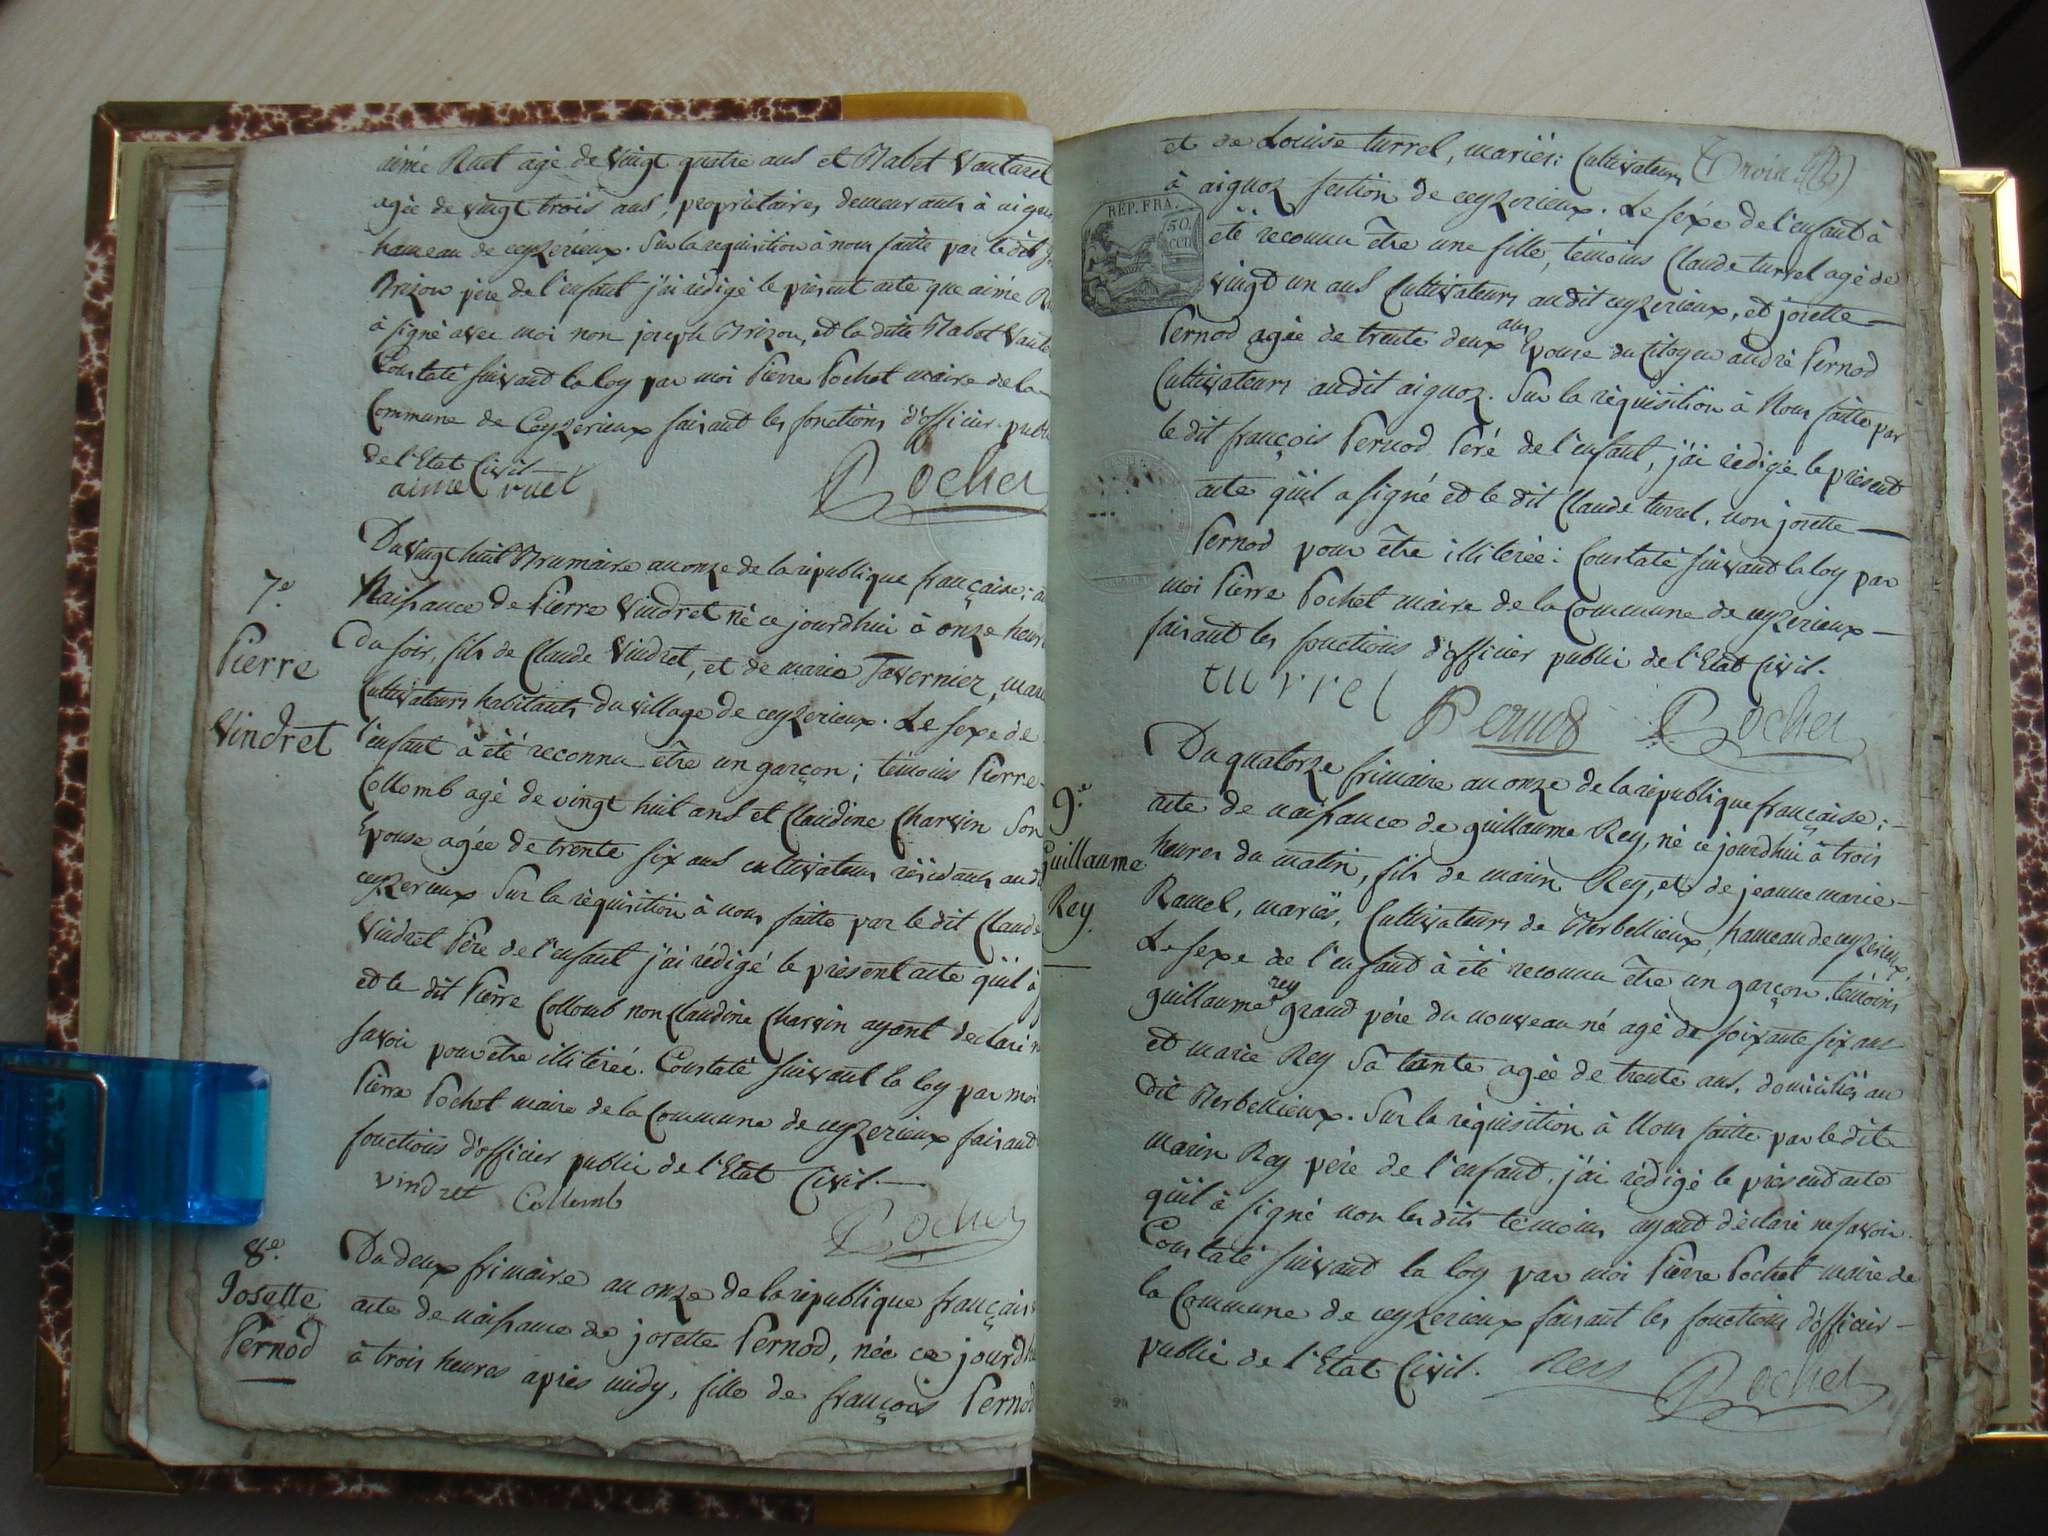 aimé Ruet agé de vingt quatre ans et Mabet Vautaret
agée de vingt trois ans, propriétaires demeurants à aigno
hameau de ceyzerieux. Sur la requisition à nous faitte par le dit
Brizon père de l'enfant j'ai rédigé le présent acte que aimé
à signé avec moi non joseph Brizon, et la dite Mabet Vaute
Constaté suivant la loy par moi Pierre Pochet maire de la
Commune de Ceyzerieux faisant les fonctions d'officier public
de l'Etat Civil
aime ruet Pochet
Du vingt huit Brumaire an onze de la république française; a
7e. Naissance de Pierre Vindret né ce jourdhui à onze heures
Pierre du soir, fils de Claude Vindret, et de marie Tavernier, mari
Cultivateurs habitants du village de ceyzerieux. Le sexe de
Vindret l'enfant à été reconnu être un garçon; témoins Pierre
Collomb agé de vingt huit ans et Claudine Charvin son
Epouse agée de trente six ans cultivateurs résidants au dit
ceyzerieux Sur la réquisition à nous faitte par le dit Claude
Vindret Père de l'enfant j'ai rédigé le présent acte qu'il à
et le dit Pierre Collomb non Claudine Charvin ayant declaré n
savoir pour être illiterée. Constaté suivant la loy par moi
Pierre Pochet maire de la Commune de ceyzerieux faisant
fonctions d'officier public de l'Etat Civil.
vindret Collomb Pochet
8e. Du deux frimaire an onze de la république français
Josette acte de naissance de josette Pernod, née ce jourdhu
Pernod à trois heures après midy, fille de françois Pernod
et de Louise turrel, mariés: Cultivateurs
à aignoz section de ceyzerieux. Le sexe de l'enfant à
REP. FRA.
50. cen
été reconnu être une fille, témoins Claude turrel agé de
vingt un ans Cultivateurs audit ceyzerieux, et josette
Pernod agée de trente deux ans Epouse du Citoyen andré Pernod
Cultivateurs audit aignoz. Sur la réquisition à Nous faitte par
le dit françois Pernod Peré de l'enfant, j'ai rédigé le présent
acte qu'il a signé et le dit Claude turrel, non josette
Pernod pour être illiterée: Constaté suivant la loy par
moi Pierre Pochet maire de la Commune de ceyzerieux
faisant les fonctions d'officier public de l'Etat Civil.
turrel Pernod Pochet
Du quatorze frimaire an onze de la république française;
9.e acte de naissance de guillaume Rey, né ce jourdhui à trois
Guillaume heures du matin, fils de marin Rey, et de jeanne marie
Rey. Ramel, mariés, Cultivateurs de Merbellieux, hameau de ceyzerieux,
Le sexe de l'enfant à été reconnu être un garçon, témoins
guillaume rey grand père du nouveau né agé de soixante six ans
et marie Rey sa tante agée de trente ans, domiciliés au
dit Merbellieux. Sur la réquisition à Nous faitte par le dit
marin Rey père de l'enfant, j'ai rédigé le présent acte
qu'il à signé non les dits témoins ayant déclaré ne savoir.
Constaté suivant la loy par moi Pierre Pochet maire de
la Commune de ceyzerieux faisant les fonctions d'officier
public de l'Etat Civil. Rey Pochet